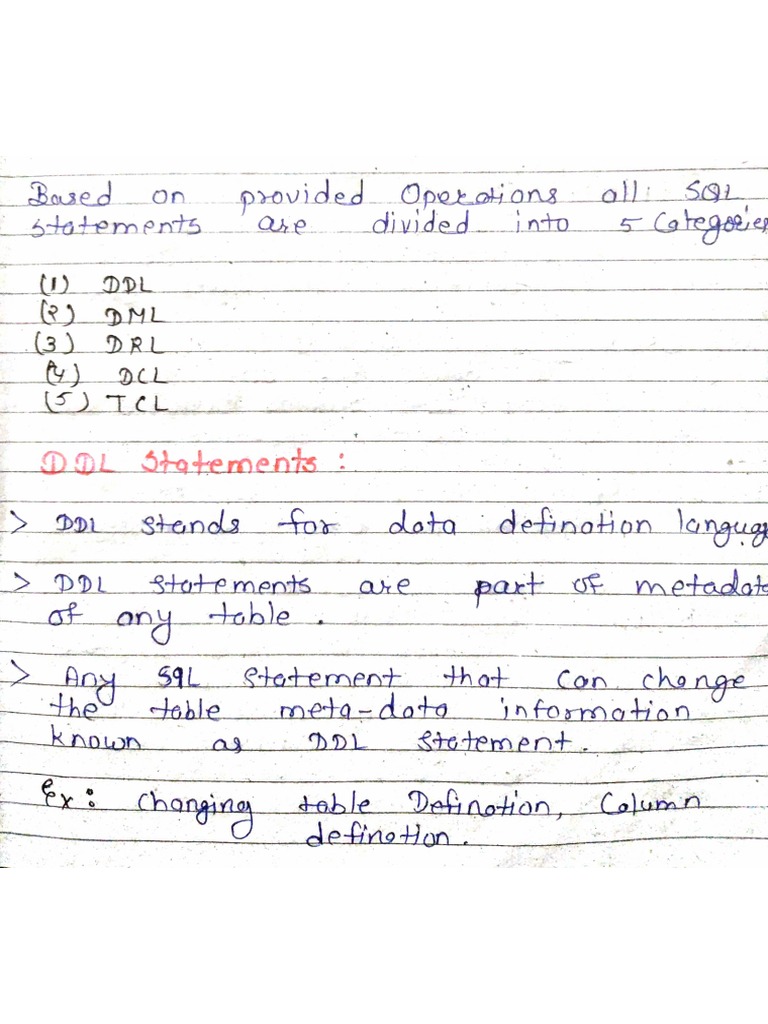 Based on provided Operations all SQL
statements are divided into 5 Categories
(1) DDL
(2) DML
(3) DRL
(4) DCL
(5) TCL
DDL Statements :
> DDL stands for data defination language
> DDL statements are part of metadata
of any table .
> Any SQL statement that can change
the table meta-data information
known as DDL statement.
Ex : changing table Defination, Column
defination.